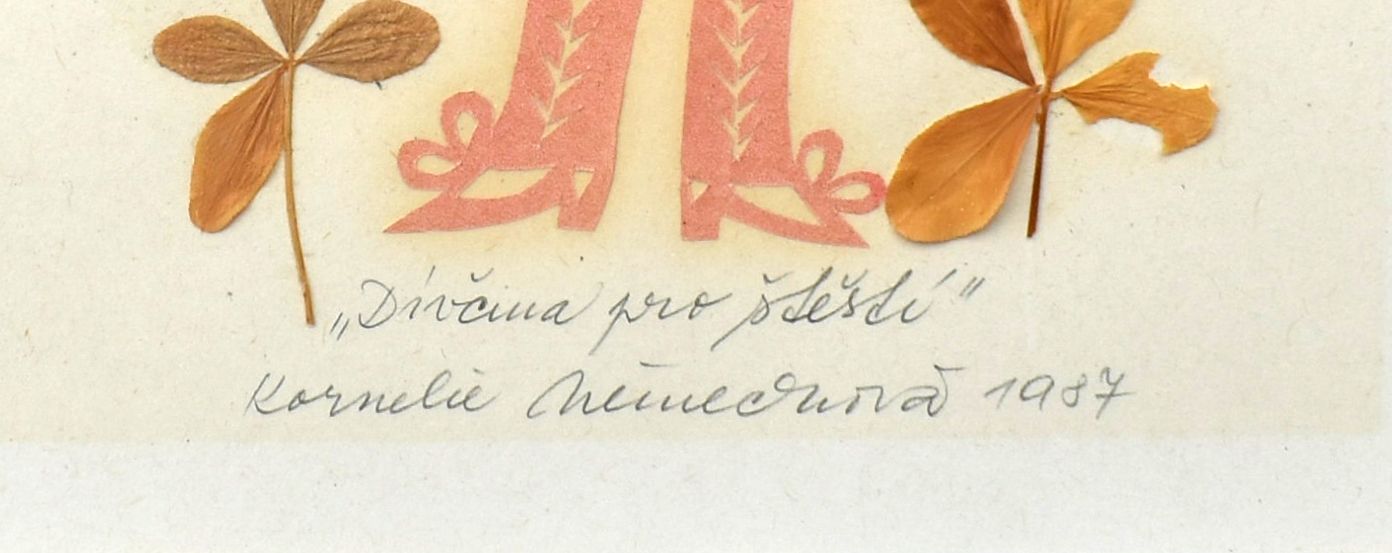 „Dívčina pro štěstí"
Kornelie Němečková 1987